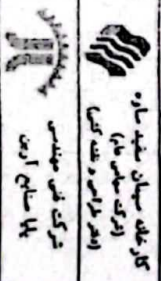 کارخانه سیمان سفید ساوه
(شرکت سهامی عام)
(دفتر طراحی و نقشه کشی)
شرکت فنی مهندسی
پایا صنایع آرین